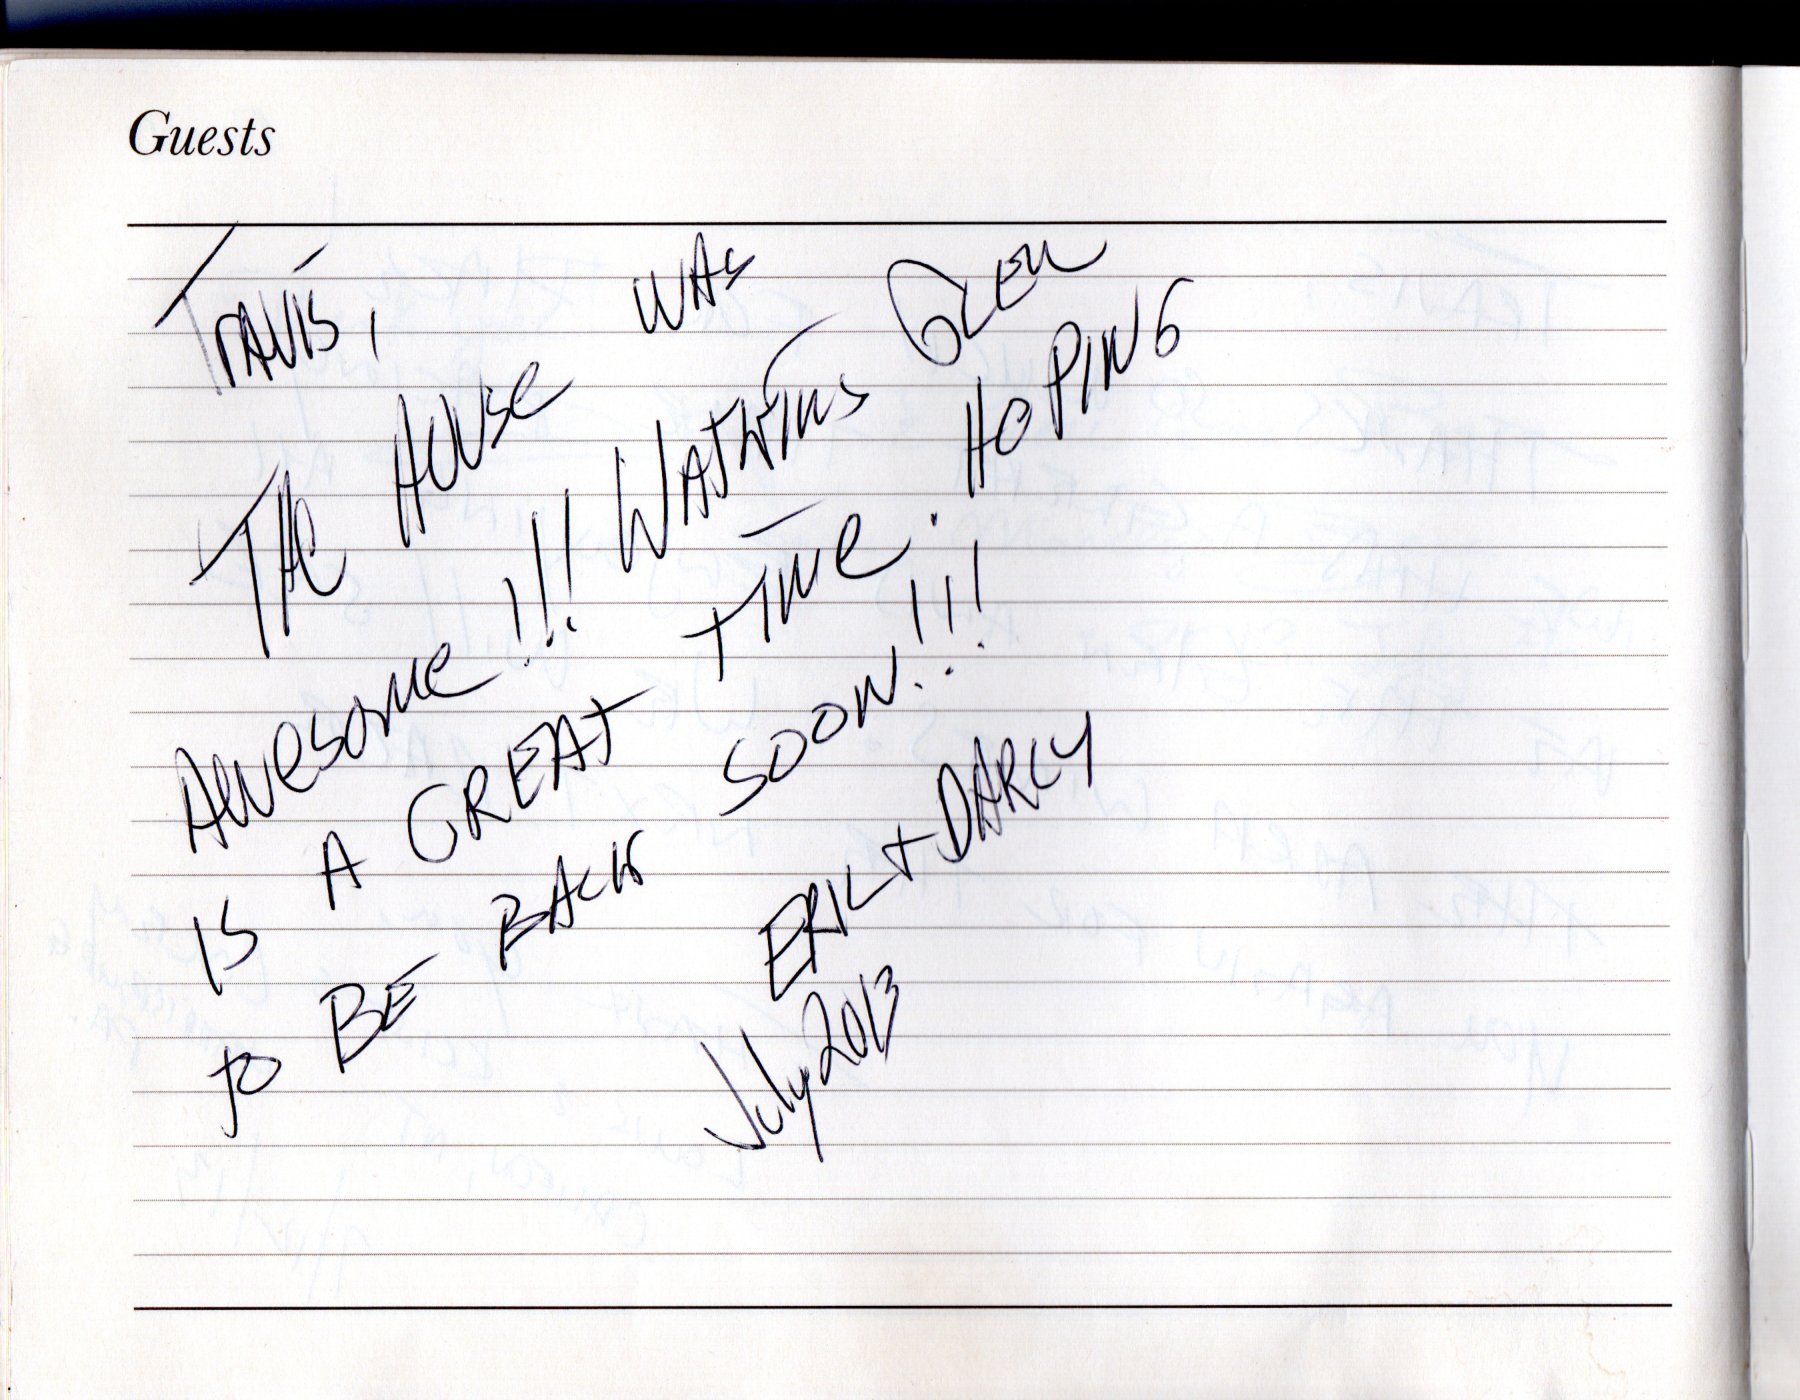 Guests
TRAVIS,
THE HOUSE WAS
AWESOME!!! WATKINS GLEN
IS A GREAT TIME. HOPING
TO BE BACK SOON!!!
ERIC + DARCY
July 2013